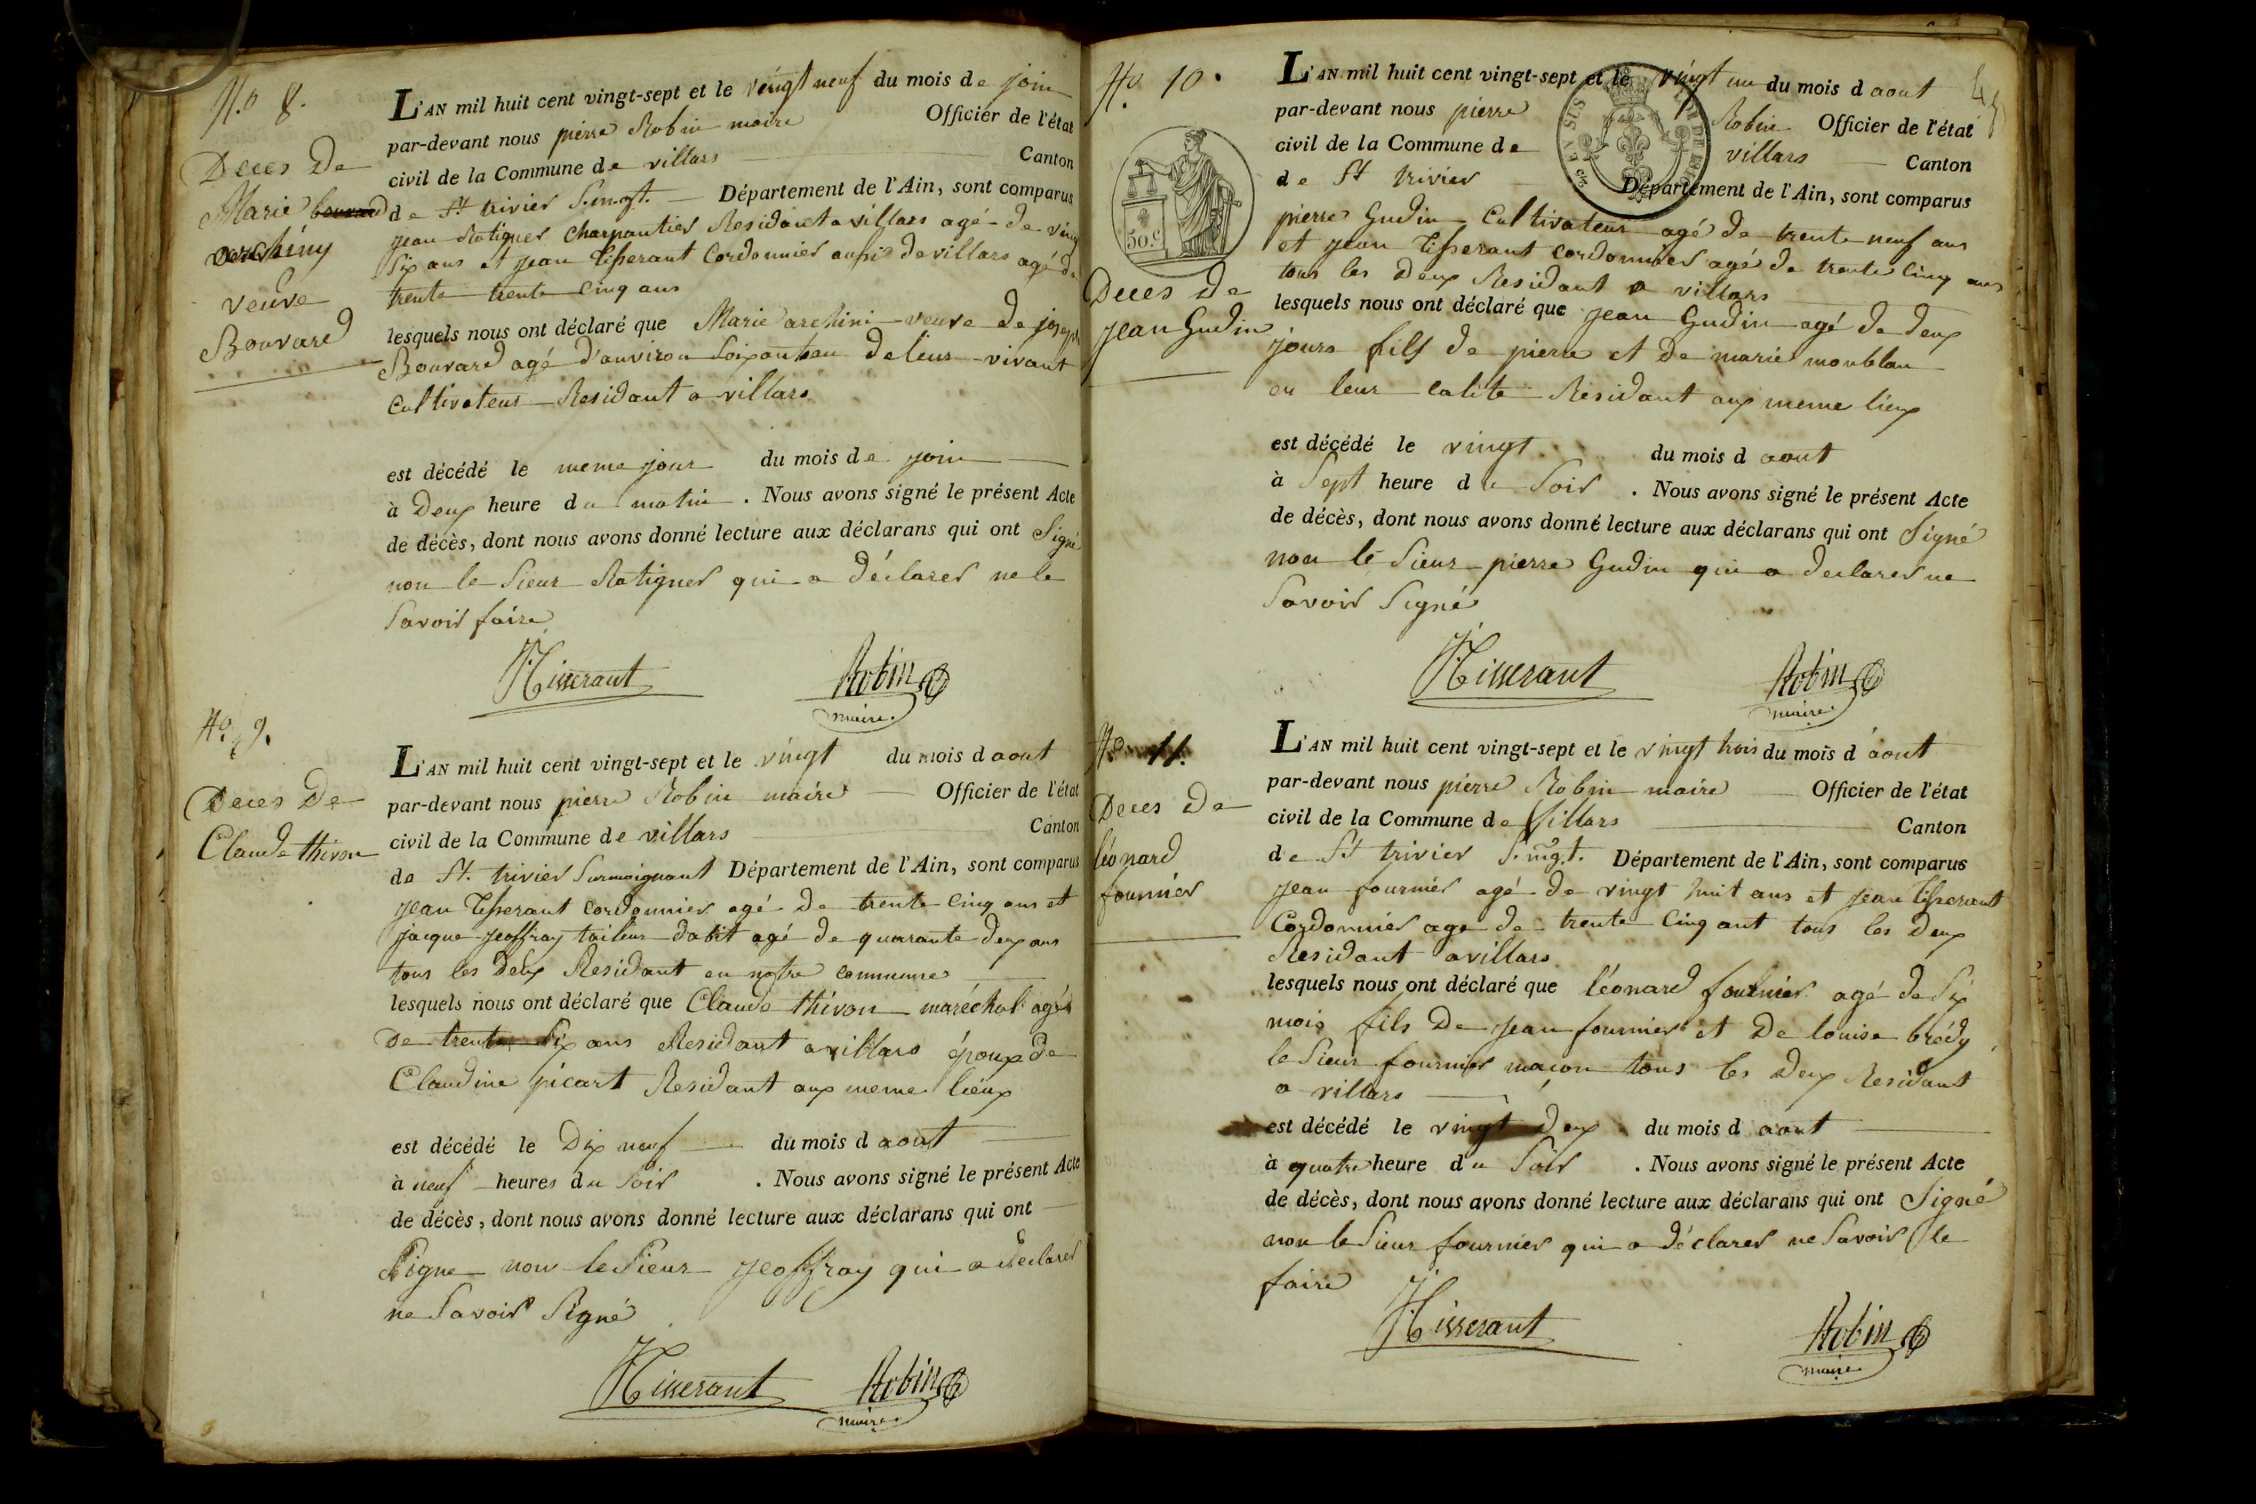 No 8.
Deces De
Marie bouvard
archiny
veuve
Bouvard
L'AN mil huit cent vingt-sept et le vingt neuf du mois de join
par-devant nous pierre Robin maire Officier de l'état
civil de la Commune de villars Canton
de St trivier S. mogt. Département de l'Ain, sont comparus
jean Ratigner charpantier Residant a villars agé de ving
six ans et jean tisserant cordonnier ausi de villars agé de
trente trente cinq ans
lesquels nous ont déclaré que Marie archini veuve de joseph
Bouvard agé d'anviron soixante an de leur vivant
cultivateur Residant a villars
est décédé le meme jour du mois de join
à deux heure du matin. Nous avons signé le présent Acte
de décès, dont nous avons donné lecture aux déclarans qui ont Signé
non le Sieur Ratigner qui a déclarer ne le
Savoir faire
JTisserant Robin
maire
No 9.
Deces De
Claude thivon
L'AN mil huit cent vingt-sept et le vingt du mois d aout
par-devant nous pierre Robin maire Officier de l'état
civil de la Commune de villars Canton
de St. trivier Surmoignant Département de l'Ain, sont comparus
jean tisserant cordonnier agé de trente cinq ans et
jacque jeoffray tailleur dabit agé de quarante deux ans
tous les deux Residant en notre commune
lesquels nous ont déclaré que Claude thivon maréchal agés
De trente six ans Residant a villars époux de
Claudine picart Residant aux meme lieux
est décédé le Dix neuf du mois d aout
à neuf heures du Soir. Nous avons signé le présent Acte
de décès, dont nous avons donné lecture aux déclarans qui ont
Signe non le Sieur jeoffray qui a declarer
ne Savoir Signé
JTisserant Robin
maire
No 10.
Deces De
jean Gudin
50.c
L'AN mil huit cent vingt-sept et le vingt un du mois d aout
par-devant nous pierre Robin Officier de l'état
civil de la Commune de villars Canton
de St trivier Département de l'Ain, sont comparus
pierre Gudin Cultivateur agé de trente neuf ans
et jean tisserant cordonnier agé de trente cinq ans
tous les deux Residant a villars
lesquels nous ont déclaré que jean Gudin agé de deux
jours fils de pierre et de marie monblan
en leur calité Residant aux meme lieux
est décédé le vingt du mois d aout
à Sept heure du Soir. Nous avons signé le présent Acte
de décès, dont nous avons donné lecture aux déclarans qui ont Signé
non le Sieur pierre Gudin qui a declarer ne
Savoir Signé
JTisserant Robin
maire
No 11.
Deces De
léonard
fournier
L'AN mil huit cent vingt-sept et le vingt trois du mois d aout
par-devant nous pierre Robin maire Officier de l'état
civil de la Commune de villars Canton
de St trivier S. mogt. Département de l'Ain, sont comparus
jean fournier agé de vingt huit ans et jean tisserant
Cordonnier age de trente cinq ant tous les deux
Residant a villars
lesquels nous ont déclaré que léonard fournier agé de Six
mois fils De jean fournier et De louise brédy
le Sieur fournier maçon tous les deux Residant
a villars
est décédé le vingt deux du mois d aout
à quatre heure du Soir. Nous avons signé le présent Acte
de décès, dont nous avons donné lecture aux déclarans qui ont Signé
non le Sieur fournier qui a déclarer ne Savoir le
faire
JTisserant Robin
maire